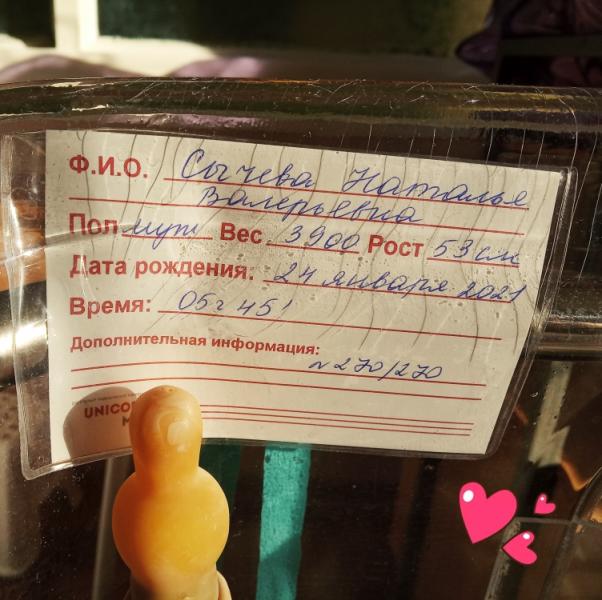 Ф.И.О. Сычева Наталья
Валерьевна
Пол муж Вес 3900 Рост 53 см
Дата рождения: 24 января 2021
Время: 05 г 45 '
Дополнительная информация:
№ 270/270